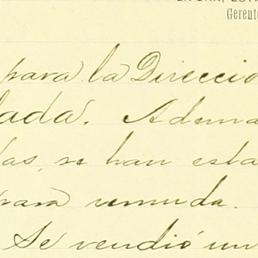 Gerente
para la Direccio
lada. Adema
das, se han esta
para
Se vendió un